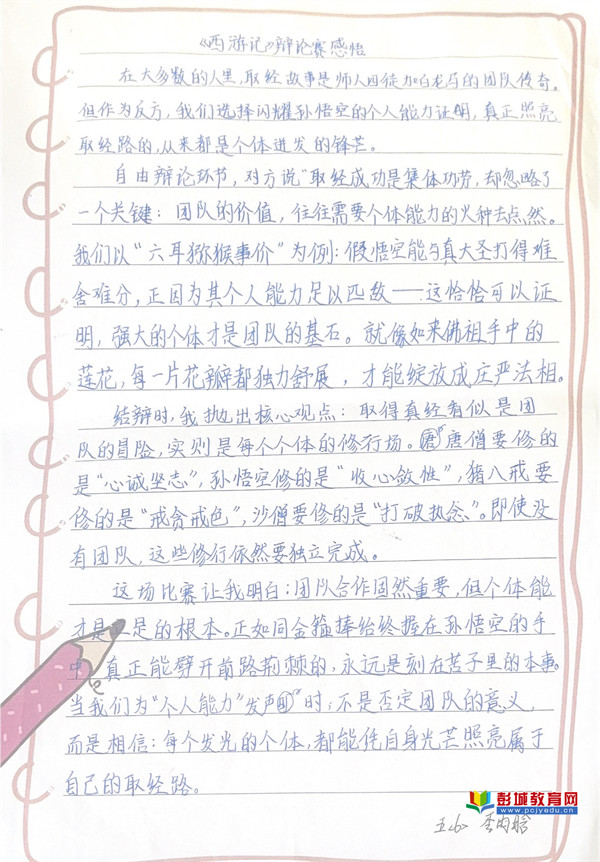 《西游记》辩论赛感悟
在大多数的人里,取经故事是师人四徒加白龙马的团队传奇。
但作为反方,我们选择闪耀孙悟空的个人能力证明,真正照亮
取经路的,从来都是个体迸发的锋芒。
自由辩论环节,对方说"取经成功是集体功劳,却忽略了
一个关键:团队的价值,往往需要个体能力的火种去点然。
我们以"六耳猕猴事价"为例:假悟空能与真大圣打得难
舍难分,正因为其个人能力足以匹敌——这恰恰可以证
明,强大的个体才是团队的基石。就像如来佛祖手中的
莲花,每一片花瓣都独力舒展,才能绽放成庄严法相。
结辩时,我抛出核心观点:取得真经看似是团
队的冒险,实则是每个个体的修行场。唐僧要修的
是"心诚坚志",孙悟空修的是"收心敛性",猪八戒要
修的是"戒贪戒色",沙僧要修的是"打破执念"。即使没
有团队,这些修行依然要独立完成。
这场比赛让我明白:团队合作固然重要,但个体能
才是 足的根本。正如同金箍棒始终握在孙悟空的手
中,真正能劈开前路荆棘的,永远是刻在苦子里的本事。
当我们为"个人能力"发声时,不是否定团队的意义,
而是相信:每个发光的个体,都能凭自身光芒照亮属于
自己的取经路。
彭城教育网
www.pcjyedu.cn
五(6)